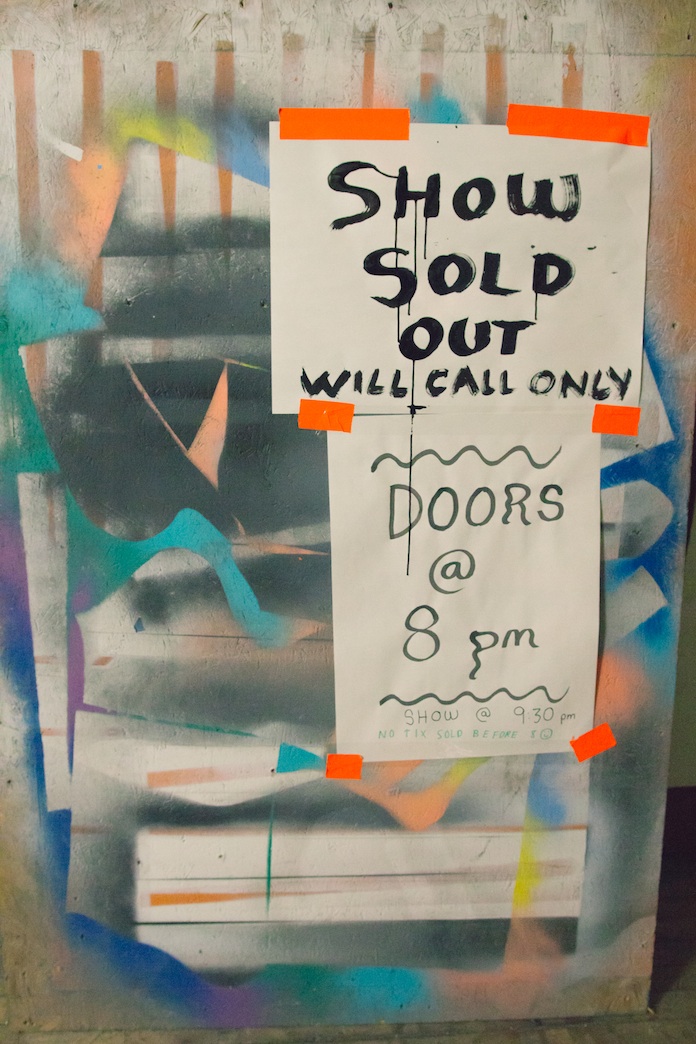 SHOW
SOLD
OUT
WILL CALL ONLY
DOORS
@
8 pm
SHOW @ 9:30 pm
NO TIX SOLD BEFORE 8 ☺